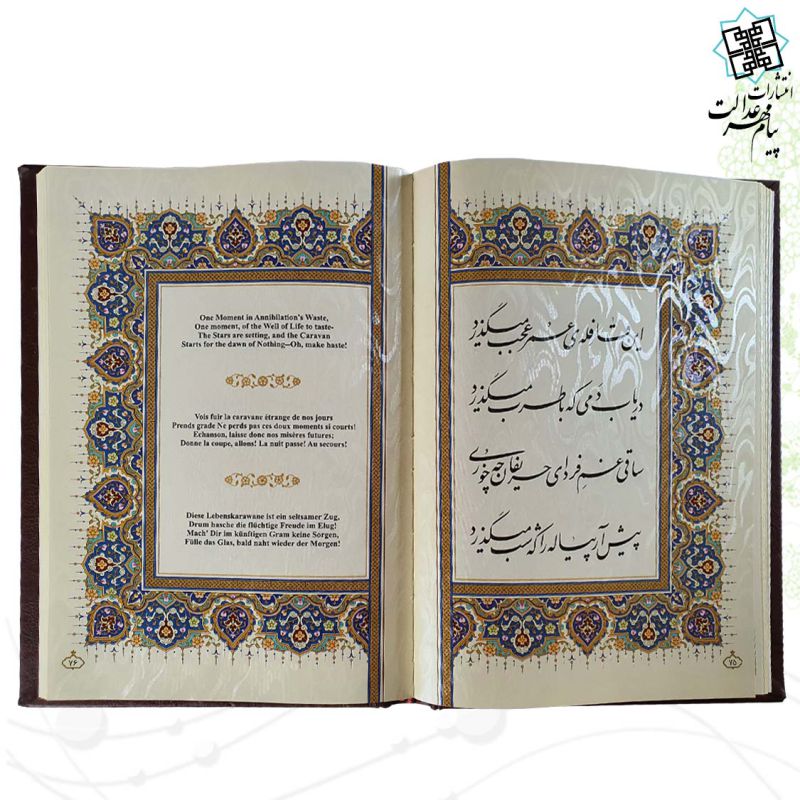 انتشارات
پیام مهر عدالت
این قافله‌ی عمر عجب میگذرد
دریاب دمی که با طرب میگذرد
ساقی غم فردای حریفان چه خوری
پیش آر پیاله را که شب میگذرد
۷۵
One Moment in Annibilation's Waste,
One moment, of the Well of Life to taste-
The Stars are setting, and the Caravan
Starts for the dawn of Nothing--Oh, make haste!
Vois fuir la caravane étrange de nos jours
Prends grade Ne perds pas ces doux moments si courts!
Echanson, laisse donc nos misères futures;
Donne la coupe, allons! La nuit passe! Au secours!
Diese Lebenskarawane ist ein seltsamer Zug,
Drum hasche die flüchtige Freude im Elug!
Mach' Dir im künftigen Gram keine Sorgen,
Fülle das Glas, bald naht wieder der Morgen!
۷۶